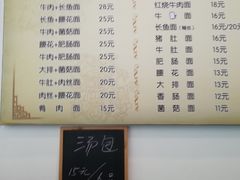 牛肉+长鱼面 28元
长鱼+腰花面 25元
牛肉+肥肠面 25元
牛肉+腰花面 25元
腰花+肥肠面 25元
大排+菌菇面 20元
牛肚+肉丝面 20元
肉丝+腰花面 20元
鸭肉面 15元
红烧牛肉面
牛 面 16元
长鱼面 16元/20元
猪肚面 16元
牛肚面 15元
肥肠面 15元
腰花面 13元
大排面 13元
香肠面 12元
菌菇面 11元
汤包
15元/